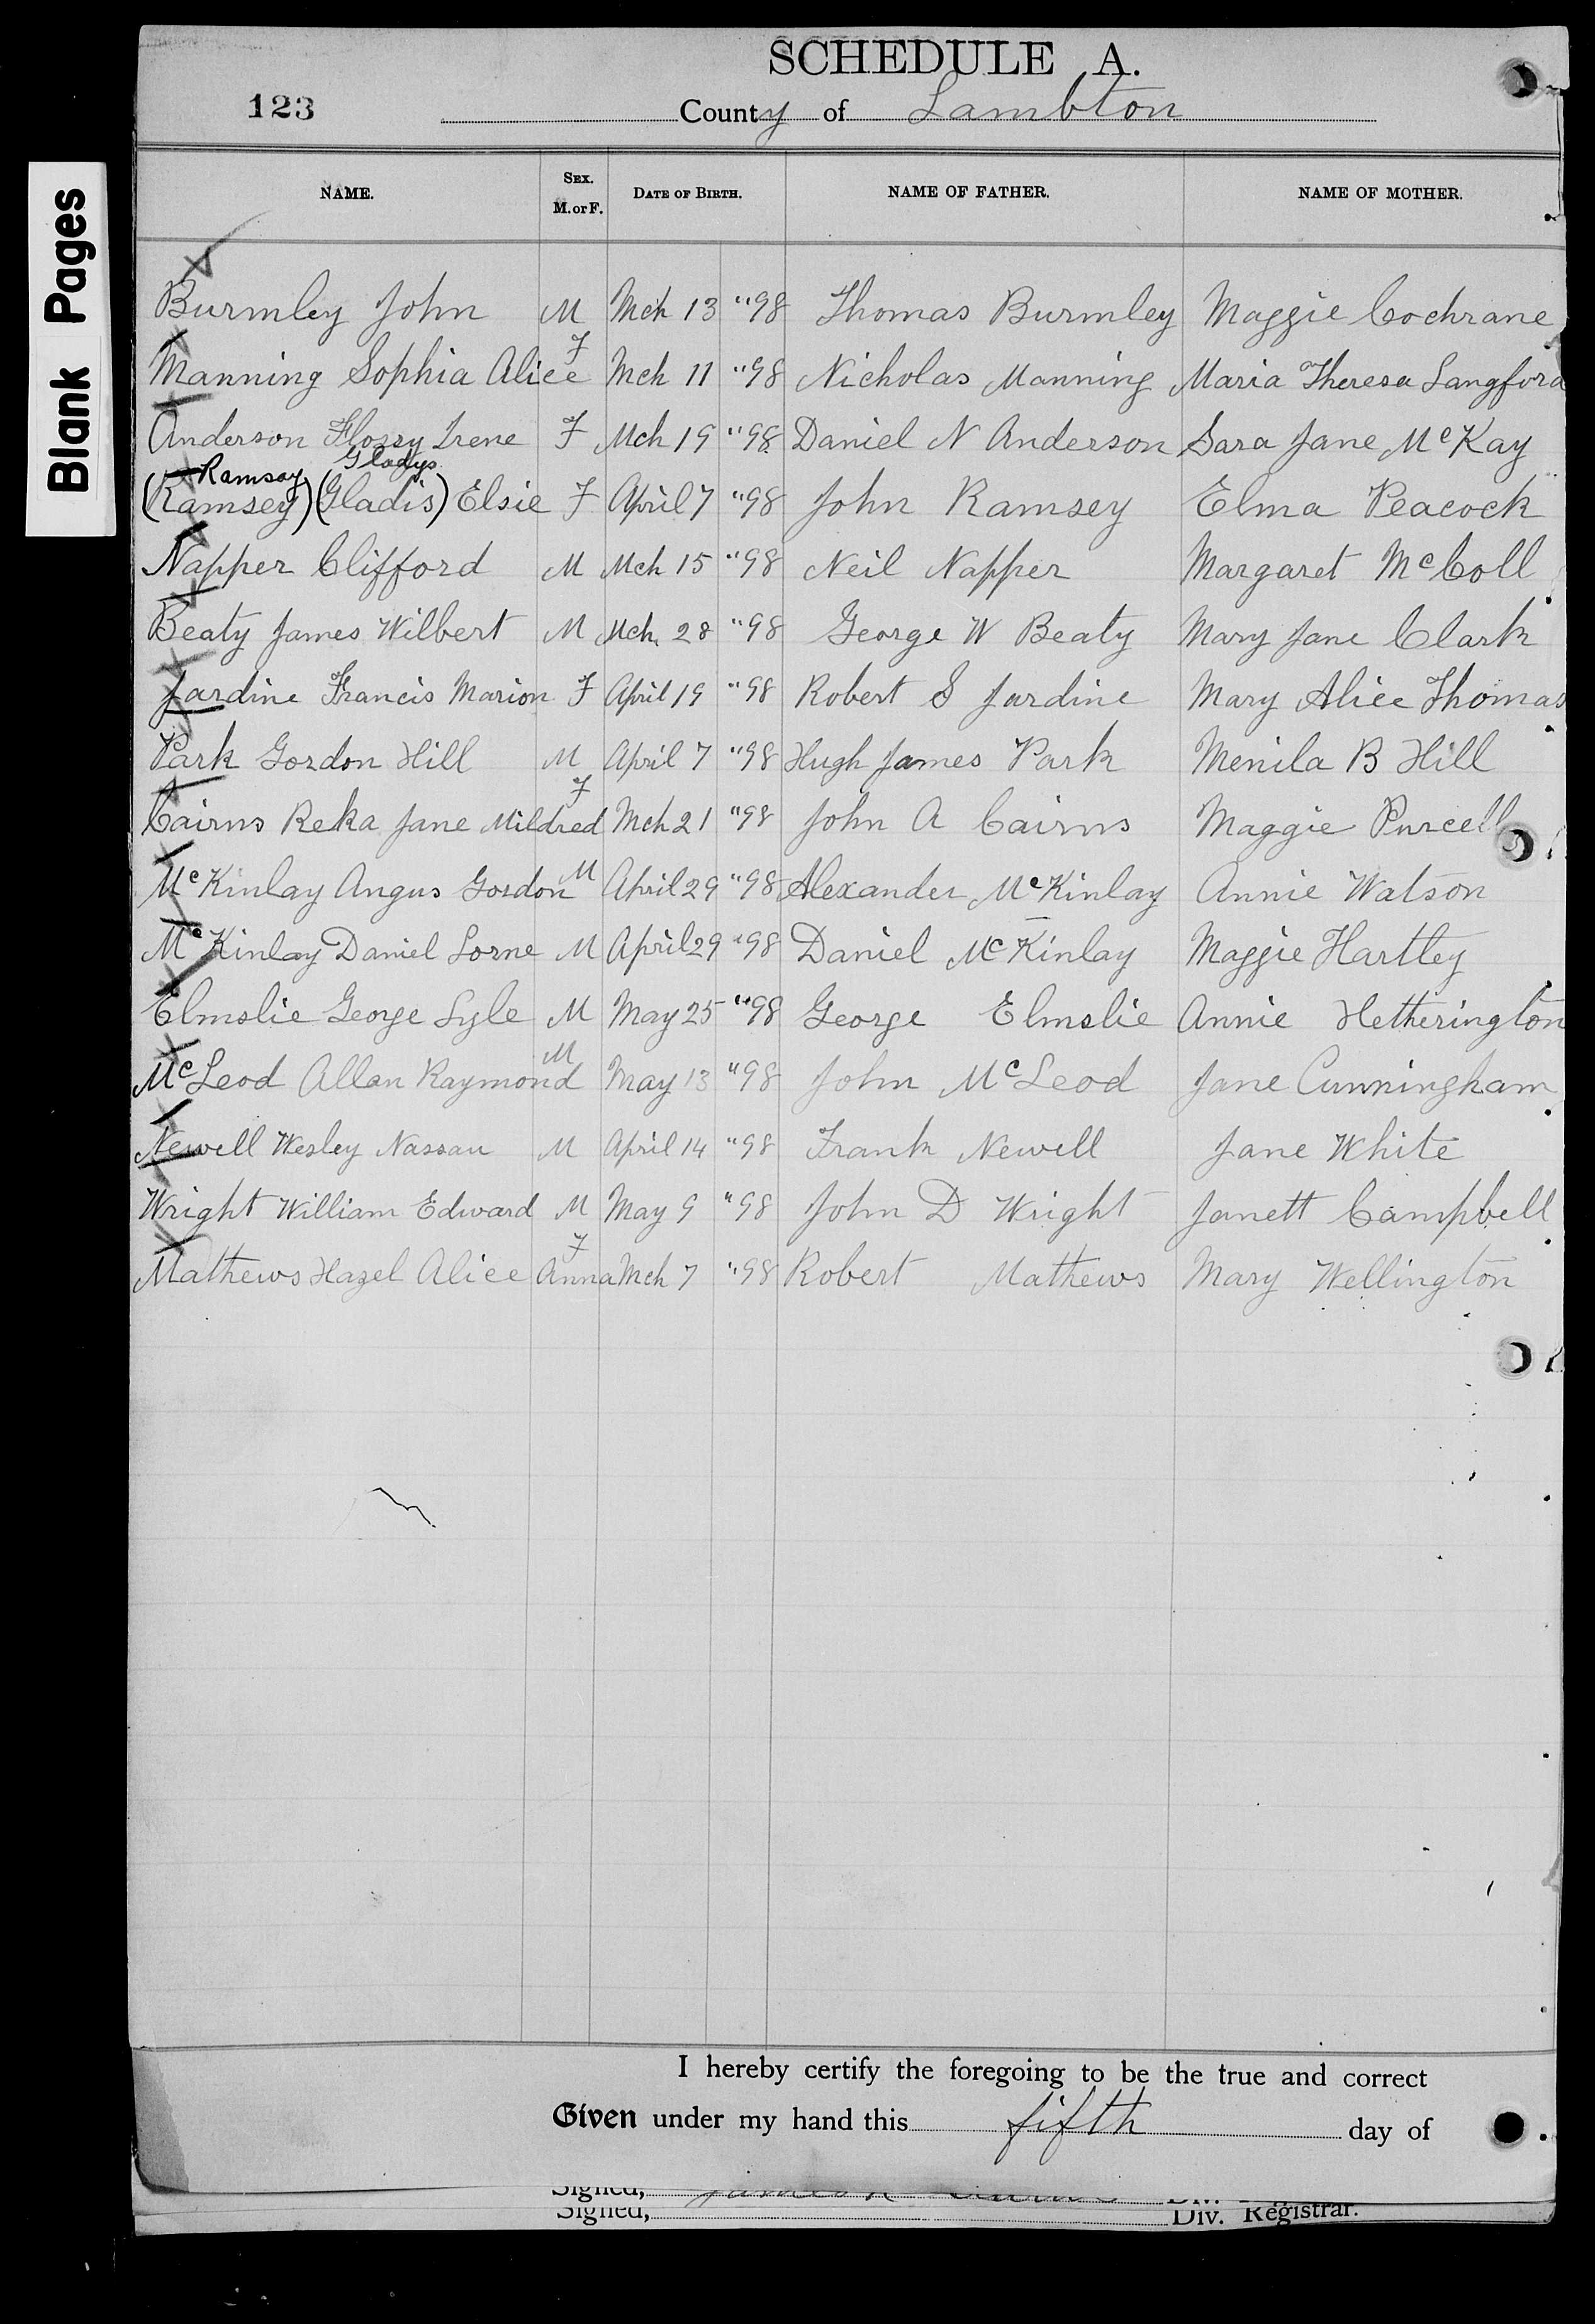 SCHEDULE A.
123
County of Lambton
Blank Pages
NAME. SEX. M. or F. DATE OF BIRTH. NAME OF FATHER. NAME OF MOTHER.
Burmley John M Mch 13 "98 Thomas Burmley Maggie Cochrane
Manning Sophia Alice F Mch 11 "98 Nicholas Manning Maria Theresa Langford
Anderson Flossy Irene F Mch 19 "98 Daniel N Anderson Sara Jane McKay
Ramsay Gladys
(Ramsey) (Gladis) Elsie F April 7 "98 John Ramsey Elma Peacock
Napper Clifford M Mch 15 "98 Neil Napper Margaret McColl
Beaty James Wilbert M Mch 28 "98 George W Beaty Mary Jane Clark
Jardine Francis Marion F April 19 "98 Robert S Jardine Mary Alice Thomas
Park Gordon Hill M April 7 "98 Hugh James Park Menila B Hill
Cairns Reka Jane Mildred F Mch 21 "98 John A Cairns Maggie Purcell
McKinlay Angus Gordon M April 29 "98 Alexander McKinlay Annie Watson
McKinlay Daniel Lorne M April 29 "98 Daniel McKinlay Maggie Hartley
Elmslie George Lyle M May 25 "98 George Elmslie Annie Hetherington
McLeod Allan Raymond M May 13 "98 John McLeod Jane Cunningham
Newell Wesley Nassau M April 14 "98 Frank Newell Jane White
Wright William Edward M May 9 "98 John D Wright Janett Campbell
Mathews Hazel Alice Anna F Mch 7 "98 Robert Mathews Mary Wellington
I hereby certify the foregoing to be the true and correct
Given under my hand this fifth day of
Signed, James Div.
Signed, Div. Registrar.